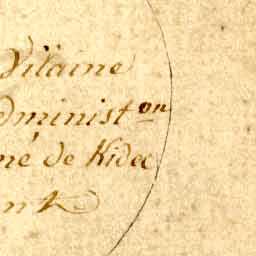 Vilaine
dminist.on
né de Kidec